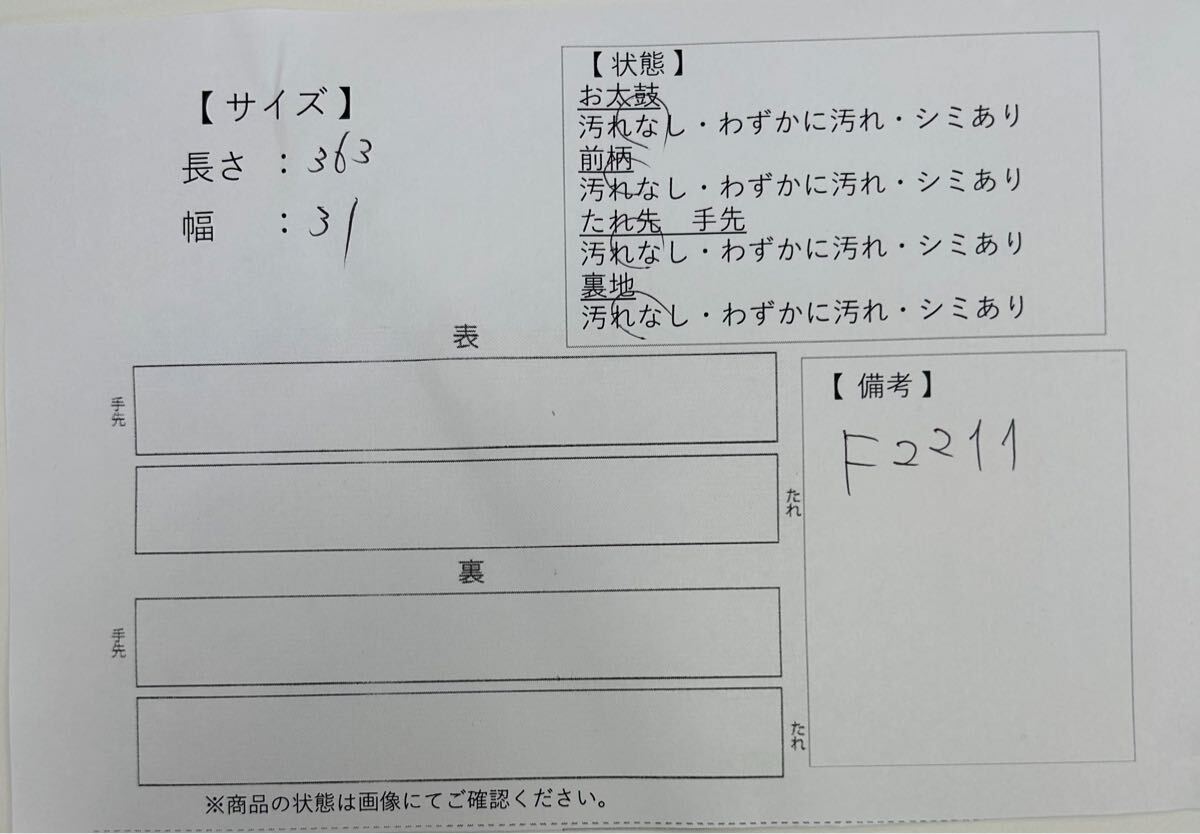 【 サイズ 】
長さ ：363
幅 ：31
【 状態 】
お太鼓
汚れなし・わずかに汚れ・シミあり
前柄
汚れなし・わずかに汚れ・シミあり
たれ先 手先
汚れなし・わずかに汚れ・シミあり
裏地
汚れなし・わずかに汚れ・シミあり
表
手先
たれ
裏
手先
たれ
【 備考 】
F2211
※商品の状態は画像にてご確認ください。